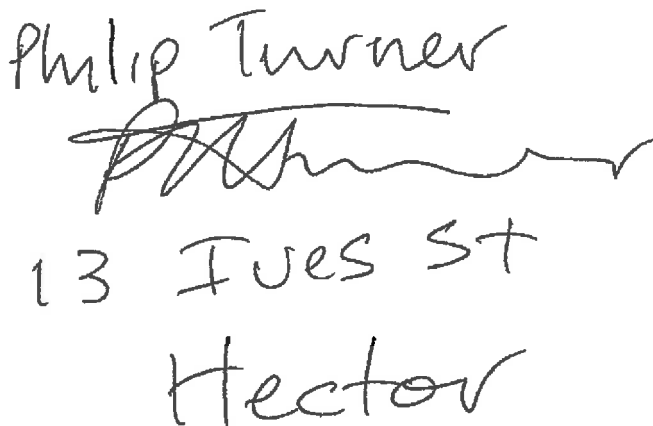 Philip Turner
13 Ives St
Hector